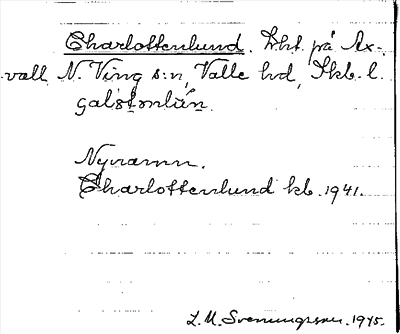 Charlottenlund. Lht. på Ax-
vall N. Ving s:n, Valle hd, Skb. l.
Nynamn.
Charlottenlund kb. 1941.
L. M. Svenungsson. 1945.